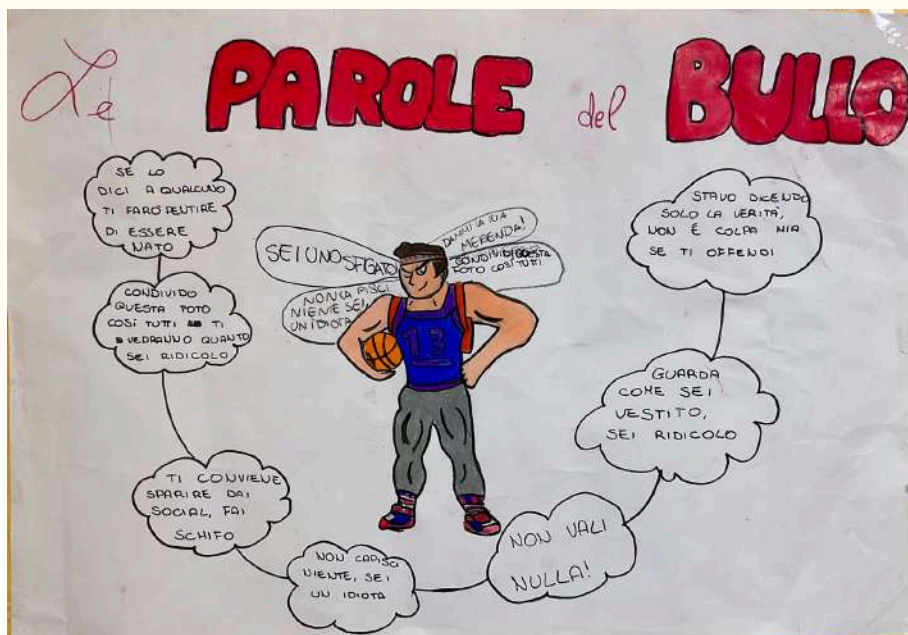 Le PAROLE del BULLO
SE LO
DICI A QUALCUNO
TI FARÒ PENTIRE
DI ESSERE
NATO
CONDIVIDO
QUESTA FOTO
COSÌ TUTTI TI
VEDRANNO QUANTO
SEI RIDICOLO
TI CONVIENE
SPARIRE DAI
SOCIAL, FAI
SCHIFO
NON CAPISCI
NIENTE, SEI
UN IDIOTA
NON VALI
NULLA!
GUARDA
COME SEI
VESTITO,
SEI RIDICOLO
STAVO DICENDO
SOLO LA VERITÀ,
NON È COLPA MIA
SE TI OFFENDI
SEI UNO SFIGATO
NON CAPISCI
NIENTE SEI
UN IDIOTA
DAMMI LA TUA
MERENDA!
CONDIVIDO QUESTA
FOTO COSÌ TUTTI
13